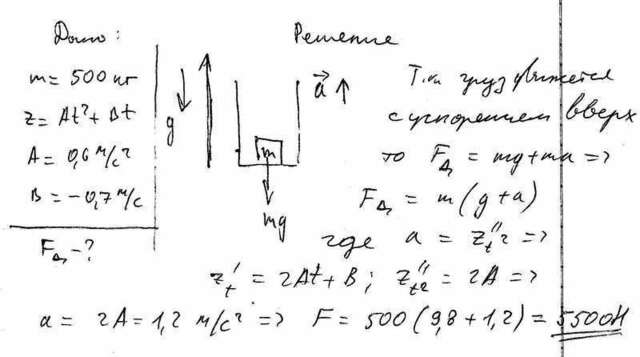 Дано:
m = 500 кг
z = At² + Bt
A = 0,6 м/с²
B = -0,7 м/с
F_д - ?
Решение
g
m
mg
a⃗ ↑
Т.к. груз движется
с ускорением вверх
то F_д = mg + ma =>
F_д = m(g + a)
где a = z''_t² =>
z'_t = 2At + B; z''_t² = 2A =>
a = 2A = 1,2 м/с² => F = 500 (9,8 + 1,2) = 5500 Н